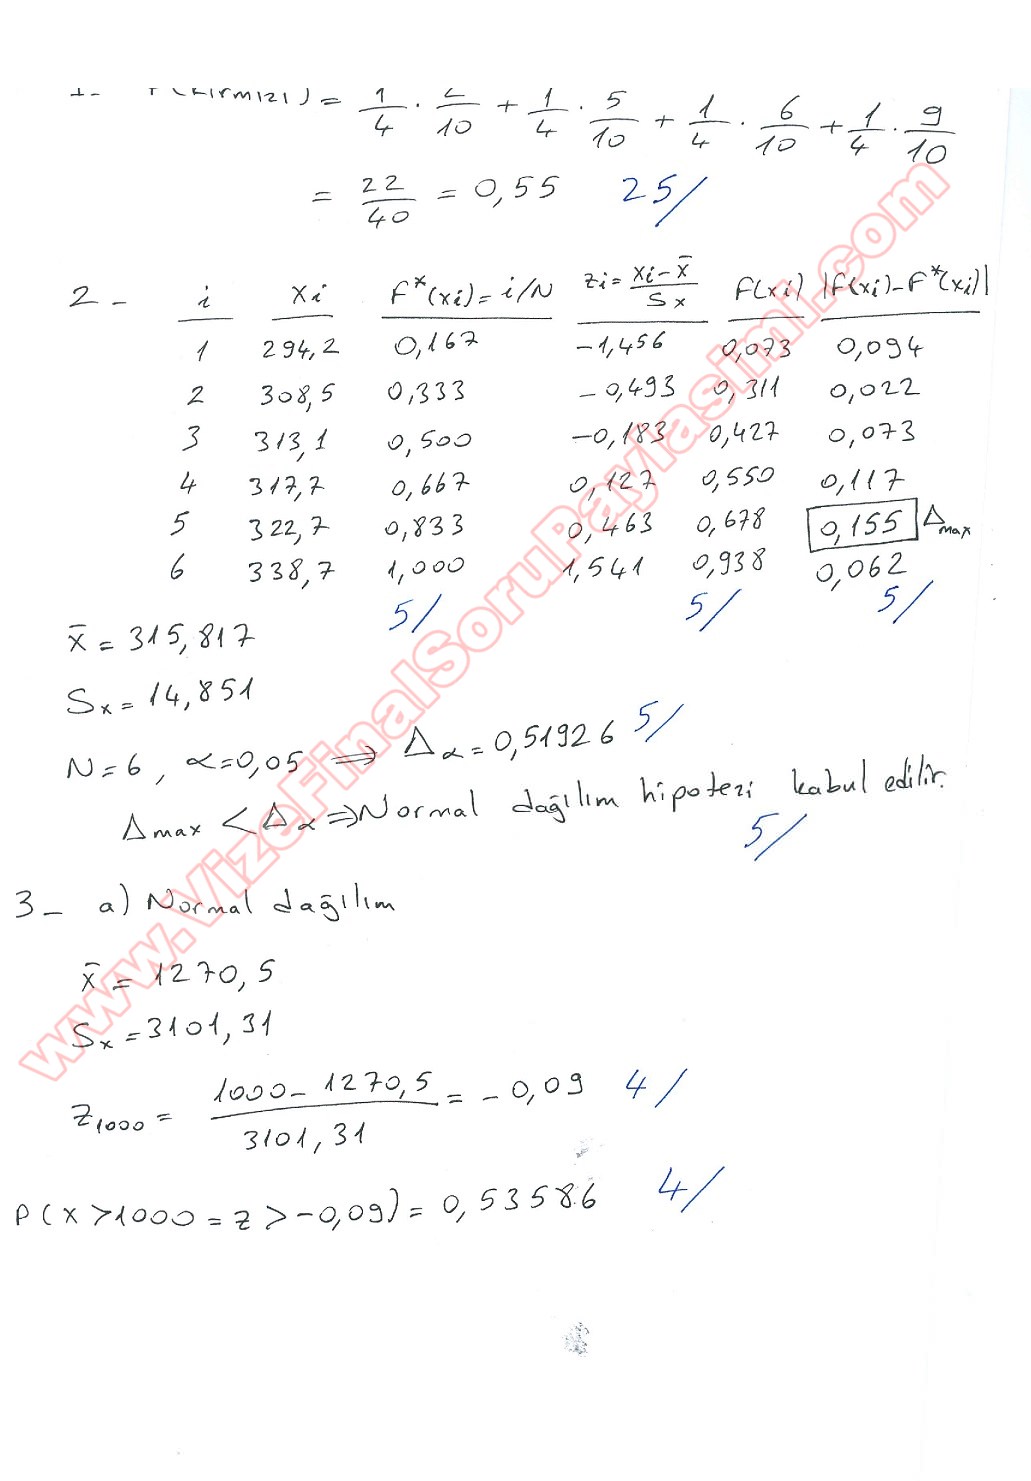 1- P(Kırmızı) = 1/4 · 2/10 + 1/4 · 5/10 + 1/4 · 6/10 + 1/4 · 9/10
= 22/40 = 0,55 25/
2- i xi F*(xi) = i/N zi = (xi - x̄)/Sx F(xi) |F(xi) - F*(xi)|
1 294,2 0,167 -1,456 0,073 0,094
2 308,5 0,333 -0,493 0,311 0,022
3 313,1 0,500 -0,183 0,427 0,073
4 317,7 0,667 0,127 0,550 0,117
5 322,7 0,833 0,463 0,678 0,155 Δmax
6 338,7 1,000 1,541 0,938 0,062
5/ 5/ 5/
x̄ = 315,817
Sx = 14,851
N=6, α=0,05 ⇒ Δα = 0,51926 5/
Δmax < Δα ⇒ Normal dağılım hipotezi kabul edilir.
5/
3- a) Normal dağılım
x̄ = 1270,5
Sx = 3101,31
Z1000 = (1000 - 1270,5)/3101,31 = -0,09 4/
P(X>1000 = Z>-0,09) = 0,53586 4/
www.VizeFinalSoruPaylasimi.com